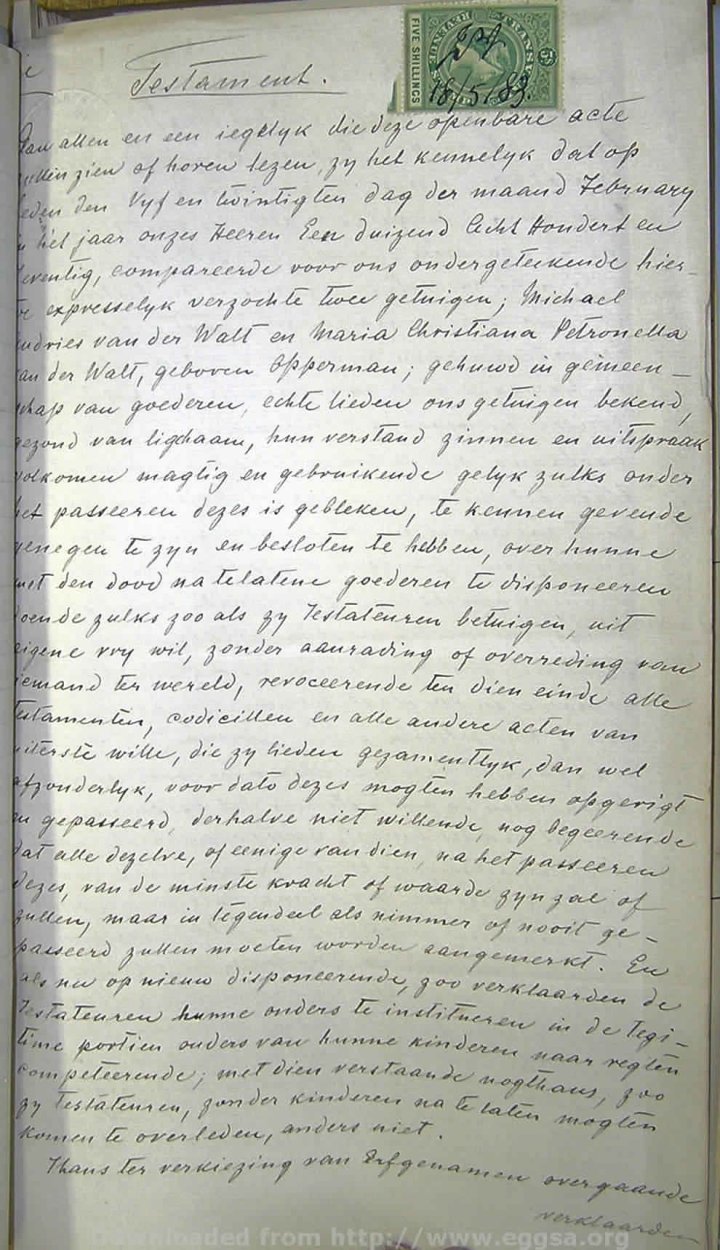 Testament.
FIVE SHILLINGS
TRANSVAAL
REVENUE
5/-
18/5/89.
Aan allen en een iegelyk die deze openbare acte
zullen zien of hooren lezen, zy het kennelyk dat op
heden den Vyf en twintigten dag der maand February
in het jaar onzes Heeren Een duizend Acht Hondert en
Zeventig, compareerde voor ons ondergeteekende hier-
toe expresselyk verzochte twee getuigen; Michael
Andries van der Walt en Maria Christiana Petronella
van der Walt, geboren Opperman; gehuwd in gemeen-
schap van goederen, echte lieden ons getuigen bekend,
gezond van ligchaam, hun verstand zinnen en uitspraak
volkomen magtig en gebruikende gelyk zulks onder
het passeeren dezes is gebleken, te kennen gevende
genegen te zyn en besloten te hebben, over hunne
met den dood na telatene goederen te disponeeren
doende zulks zoo als zy Testateuren betuigen, uit
eigene vry wil, zonder aanrading of overreding van
iemand ter wereld, revoceerende ten dien einde alle
testamenten, codicillen en alle andere acten van
uiterste wille, die zy lieden gezamentlyk, dan wel
afzonderlyk, voor dato dezes mogten hebben opgerigt
en gepasseerd, derhalve niet willende, nog begeerende
dat alle dezelve, of eenige van dien, na het passeeren
dezes, van de minste kracht of waarde zyn zal of
zullen, maar in tegendeel als nimmer of nooit ge-
passeerd zullen moeten worden aangemerkt. En
als nu op nieuw disponeerende, zoo verklaarden de
Testateuren hunne ouders te institueren in de legi-
time portien ouders van hunne kinderen naar regten
competeerende; met dien verstaande nogthans, zoo
zy testateuren, zonder kinderen na te laten mogten
komen te overleden, anders niet.
Thans ter verkiezing van Erfgenamen overgaande
verklaarden
Downloaded from http://www.eggsa.org